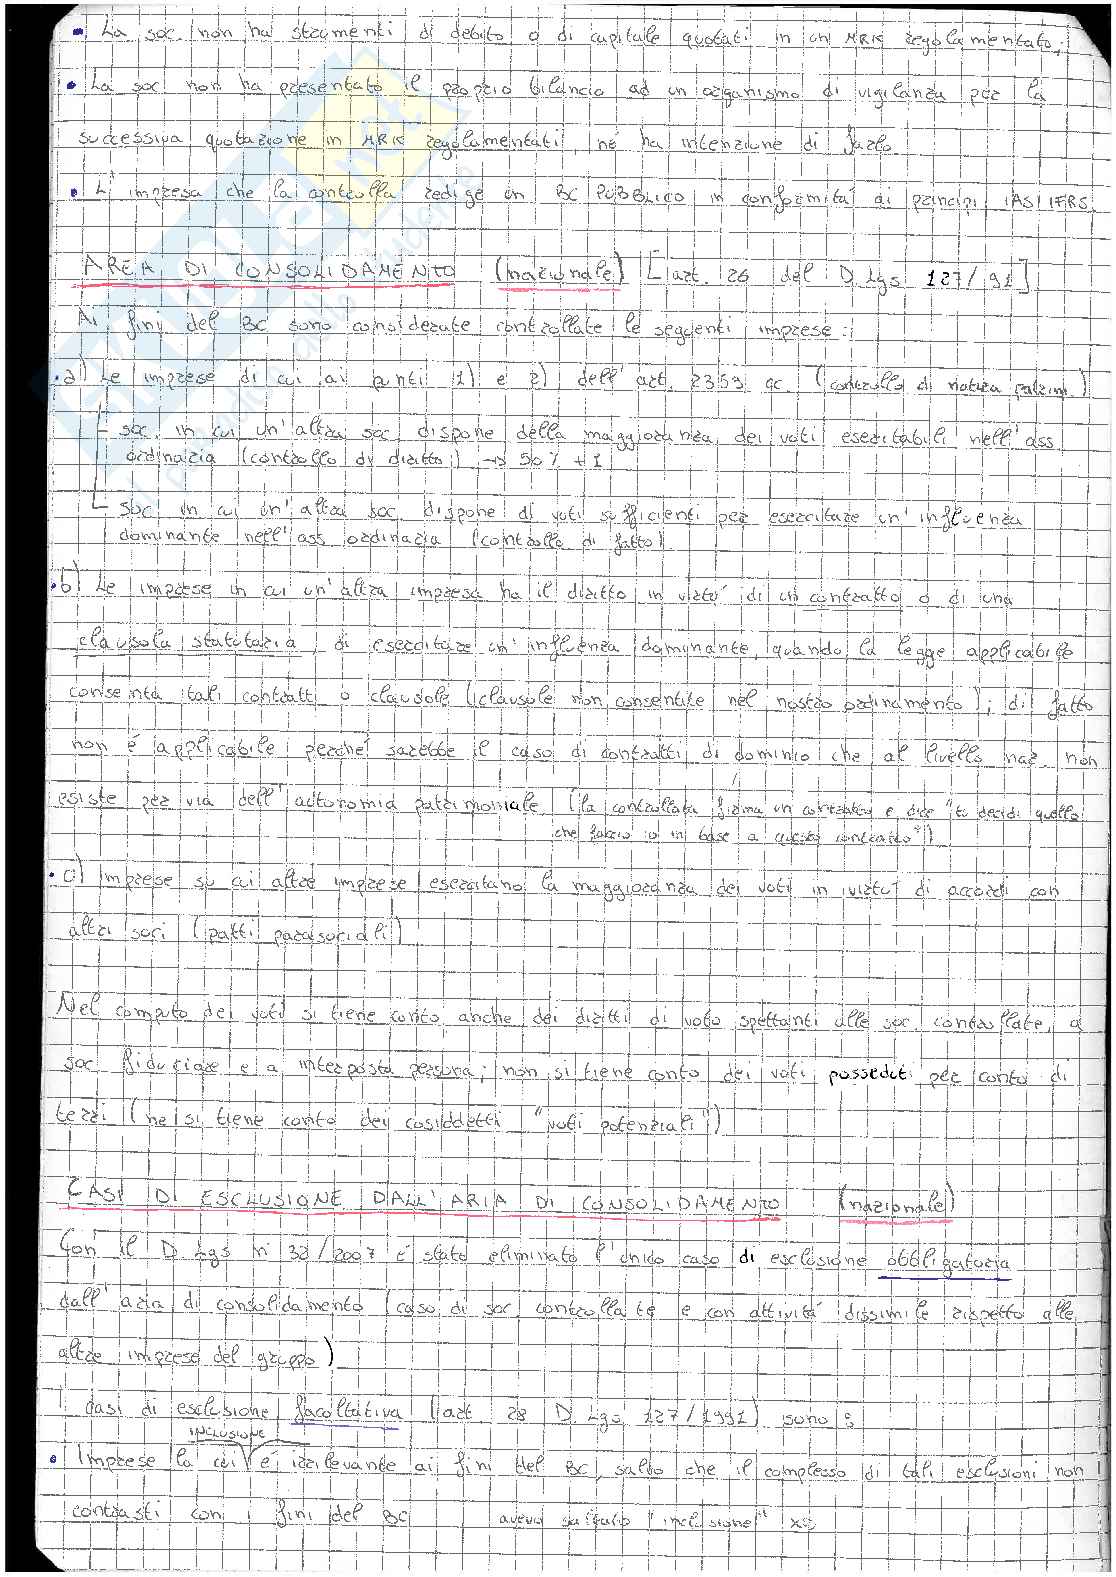 • La soc. non ha strumenti di debito o di capitale quotati in un MRK regolamentato;
• La soc non ha presentato il proprio bilancio ad un organismo di vigilanza per la
successiva quotazione in MRK regolamentati, né ha intenzione di farlo
• L'impresa che la controlla redige un BC PUBBLICO in conformità di principi IAS/IFRS.
AREA DI CONSOLIDAMENTO (nazionale) [art. 26 del D.Lgs 127/91]
Ai fini del BC sono considerate controllate le seguenti imprese:
• a) Le imprese di cui ai punti 1) e 2) dell'art. 2359 cc. (controllo di natura patrim.)
soc. in cui un'altra soc dispone della maggioranza dei voti esercitabili nell'ass
ordinaria (controllo di diritto) → 50% + 1
soc in cui un'altra soc. dispone di voti sufficienti per esercitare un'influenza
dominante nell'ass ordinaria (controllo di fatto)
• b) Le imprese in cui un'altra impresa ha il diritto in virtù di un contratto o di una
clausola statutaria, di esercitare un'influenza dominante, quando la legge applicabile
consenta tali contratti o clausole (clausole non consentite nel nostro ordinamento); di fatto
non è applicabile perché sarebbe il caso di contratti di dominio che al livello naz. non
esiste per via dell'autonomia patrimoniale (la controllata firma un contratto e dice "tu decidi quello
che faccio io in base a questo contratto")
• c) Imprese su cui altre imprese esercitano la maggioranza dei voti in virtù di accordi con
altri soci (patti parasociali)
Nel computo dei voti si tiene conto anche dei diritti di voto spettanti alle soc controllate, a
soc fiduciarie e a interposta persona; non si tiene conto dei voti posseduti per conto di
terzi (né si tiene conto dei cosiddetti "voti potenziali")
CASI DI ESCLUSIONE DALL'ARIA DI CONSOLIDAMENTO (nazionale)
Con il D.Lgs n° 32/2007 è stato eliminato l'unico caso di esclusione obbligatoria
dall'aria di consolidamento (caso di soc controllate e con attività dissimile rispetto alle
altre imprese del gruppo)
I casi di esclusione facoltativa (art 28 D.Lgs. 127/1991) sono:
INCLUSIONE
• Imprese la cui è irrilevante ai fini del BC, salvo che il complesso di tali esclusioni non
contrasti con i fini del BC avevo saltato "inclusione"